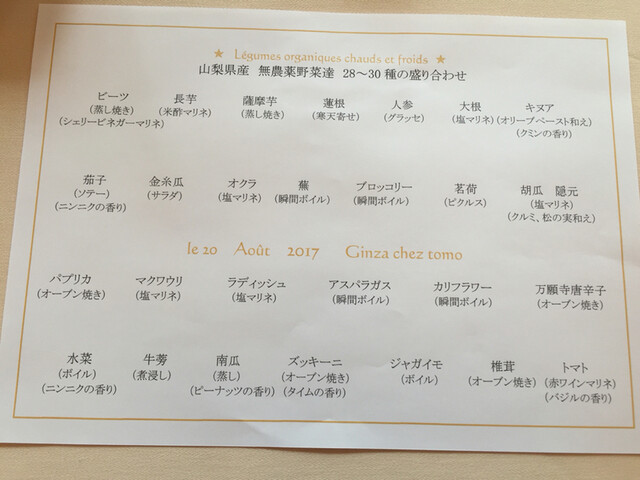 ★ Légumes organiques chauds et froids ★
山梨県産 無農薬野菜達 28～30種の盛り合わせ
ビーツ 長芋 薩摩芋 蓮根 人参 大根 キヌア
(蒸し焼き) (米酢マリネ) (蒸し焼き) (寒天寄せ) (グラッセ) (塩マリネ) (オリーブペースト和え)
(シェリービネガーマリネ) (クミンの香り)
茄子 金糸瓜 オクラ 蕪 ブロッコリー 茗荷 胡瓜 隠元
(ソテー) (サラダ) (塩マリネ) (瞬間ボイル) (瞬間ボイル) (ピクルス) (塩マリネ)
(ニンニクの香り) (クルミ、松の実和え)
le 20 Août 2017 Ginza chez tomo
パプリカ マクワウリ ラディッシュ アスパラガス カリフラワー 万願寺唐辛子
(オーブン焼き) (塩マリネ) (塩マリネ) (瞬間ボイル) (瞬間ボイル) (オーブン焼き)
水菜 牛蒡 南瓜 ズッキーニ ジャガイモ 椎茸 トマト
(ボイル) (煮浸し) (蒸し) (オーブン焼き) (ボイル) (オーブン焼き) (赤ワインマリネ)
(ニンニクの香り) (ピーナッツの香り) (タイムの香り) (バジルの香り)